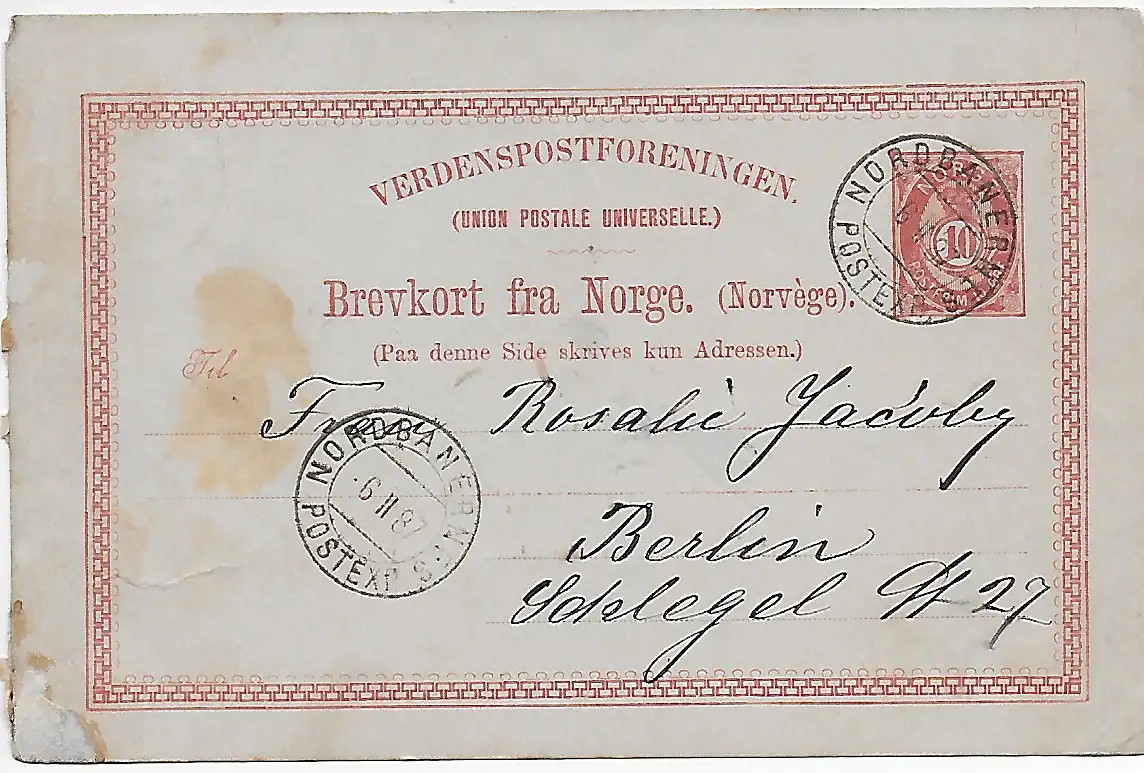 VERDENSPOSTFORENINGEN.
(UNION POSTALE UNIVERSELLE.)
Brevkort fra Norge. (Norvège).
(Paa denne Side skrives kun Adressen.)
Til
Frau Rosalie Jacoby
Berlin
Schlegel St 27
NORGE
10
POSTFRIM
NORDBANERNES
POSTEXP.
NORDBANERNES
6 II 87
POSTEXP.